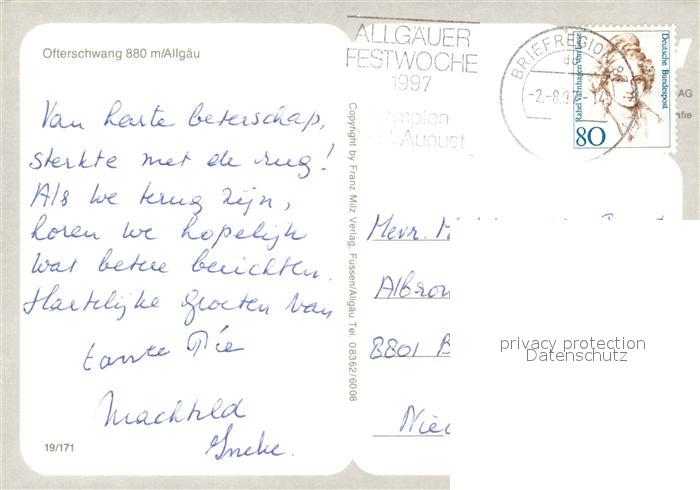 Ofterschwang 880 m/Allgäu
Van harte beterschap,
sterkte met de rug!
Als we terug zijn,
horen we hopelijk
wat betere berichten.
Hartelijke groeten van
tante Rie
Machteld
Ineke.
19/171
Copyright by Franz Milz Verlag, Füssen/Allgäu Tel. 08362/6008
ALLGÄUER
FESTWOCHE
1997
August
BRIEFREGION 87
-2.-8.9
Deutsche Bundespost
Rahel Varnhagen von Ense
80
AG
Mevr.
8801 B
privacy protection
Datenschutz